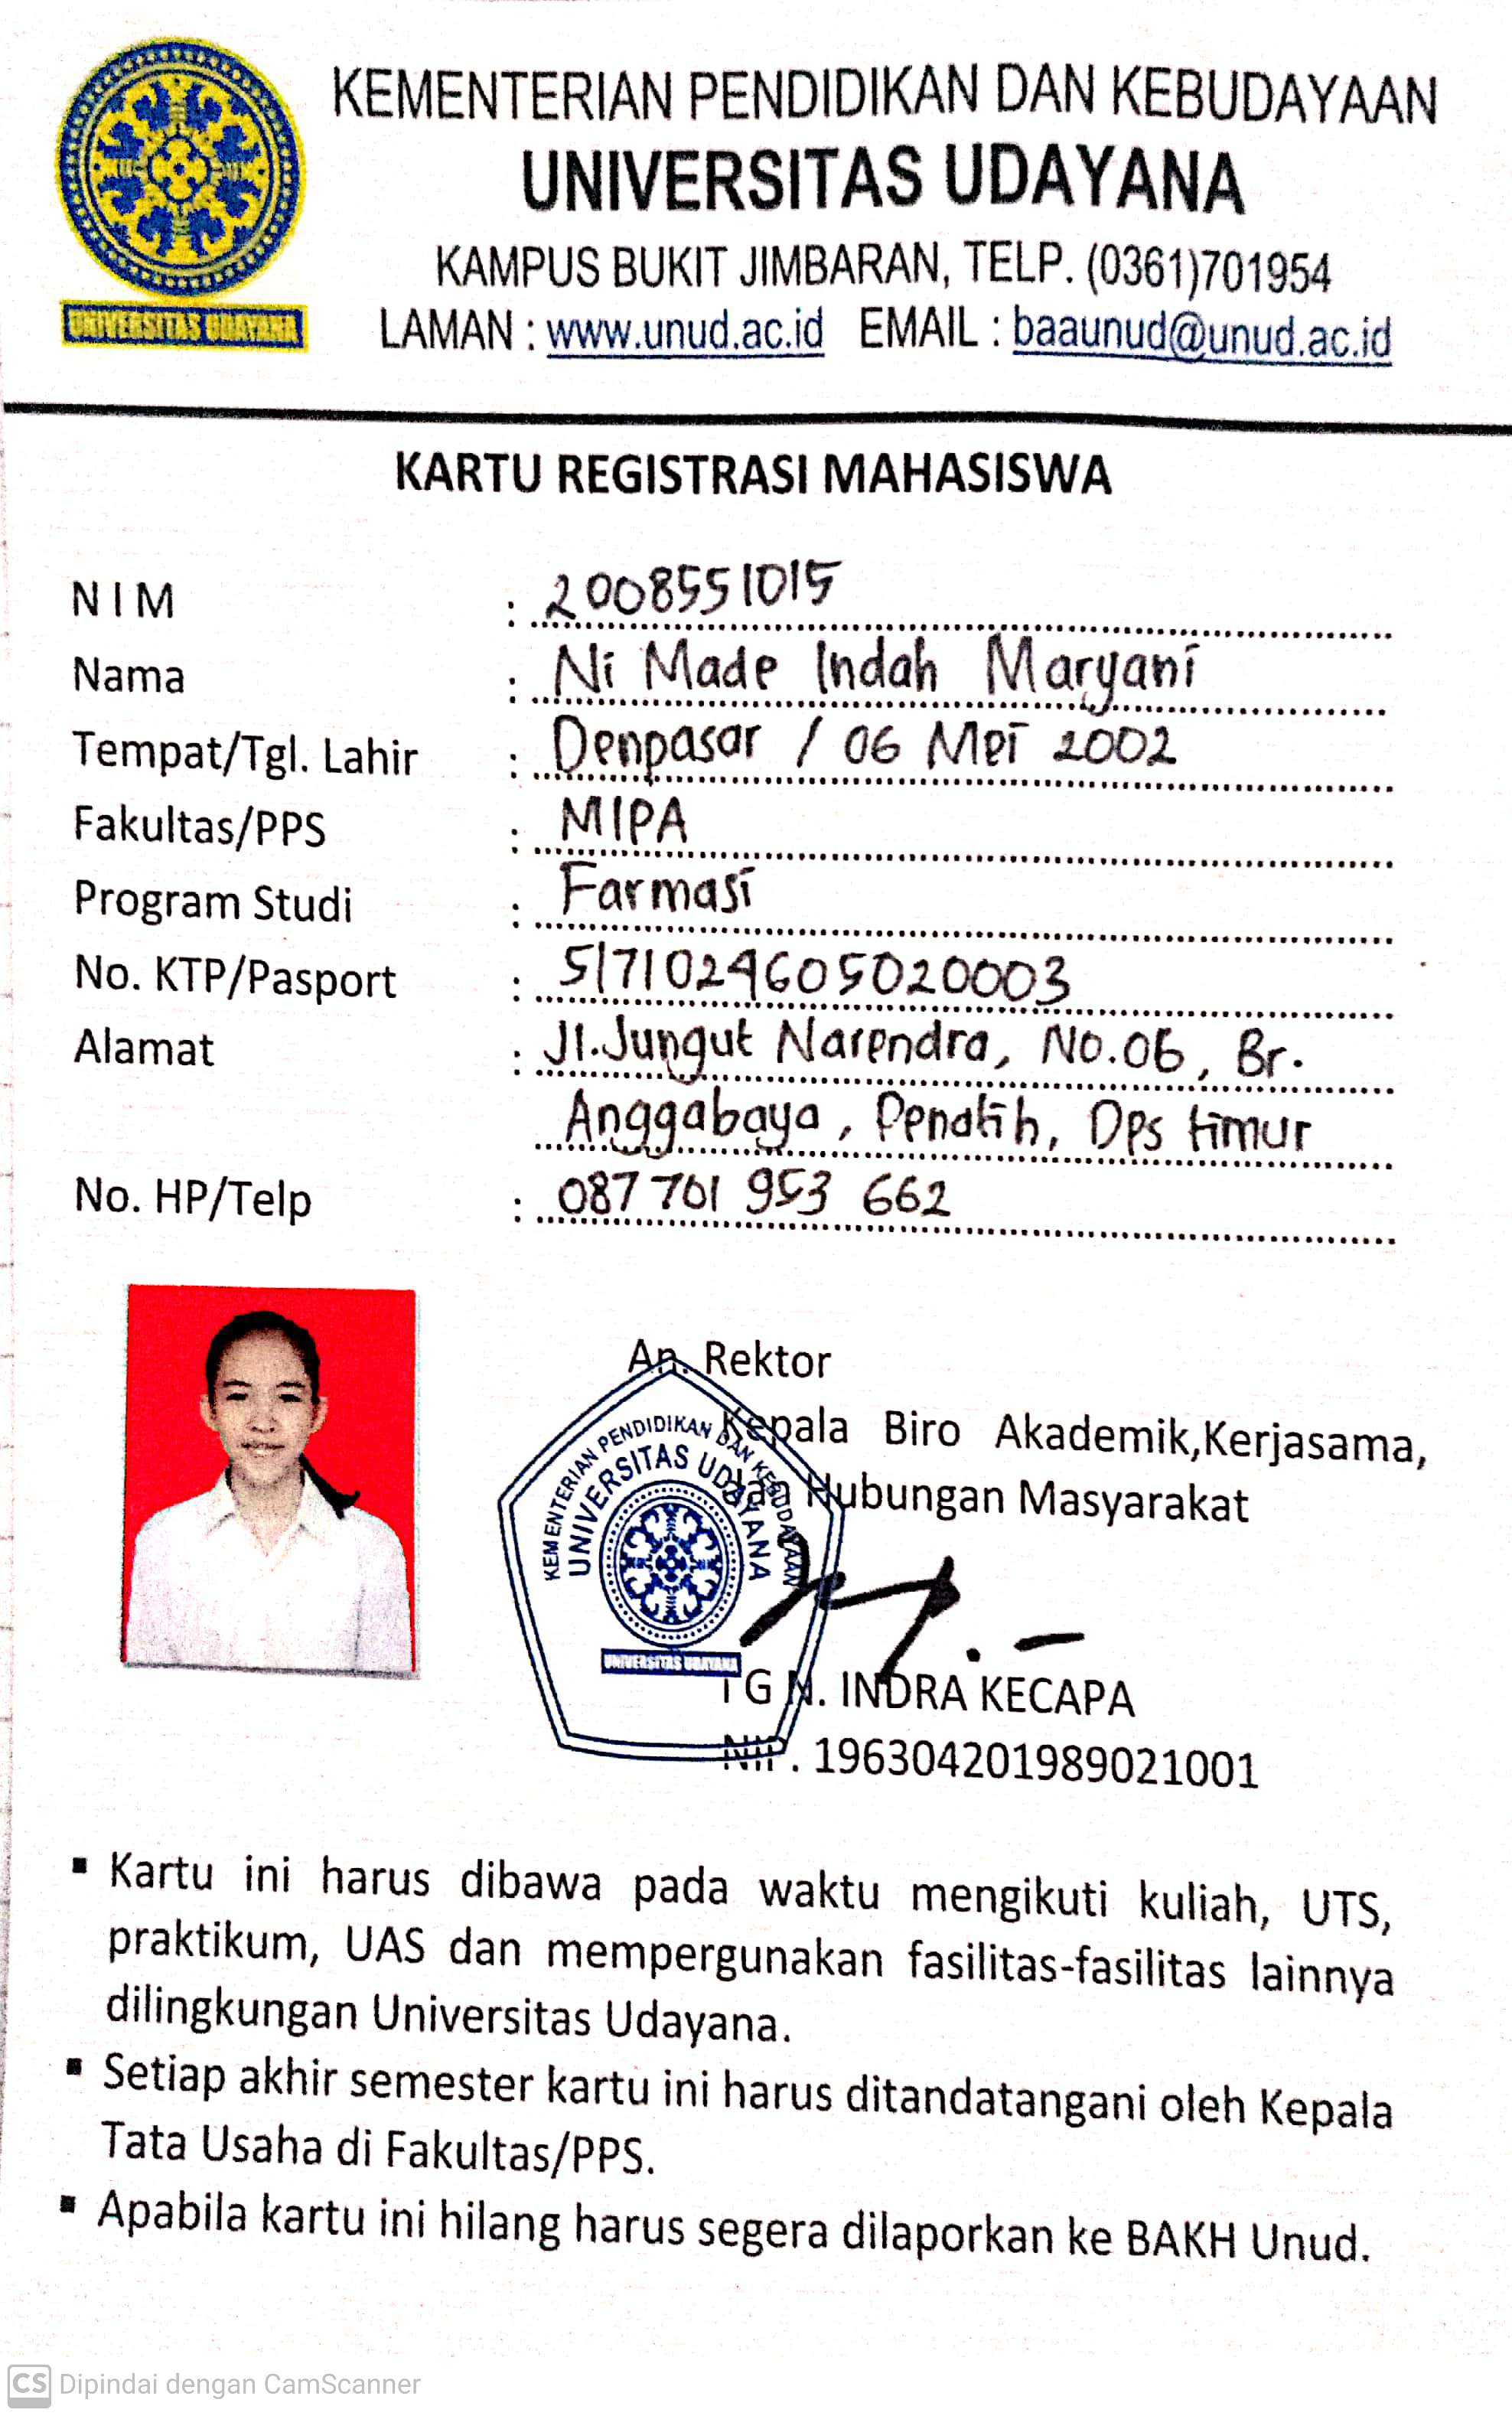 KEMENTERIAN PENDIDIKAN DAN KEBUDAYAAN
UNIVERSITAS UDAYANA
KAMPUS BUKIT JIMBARAN, TELP. (0361)701954
LAMAN : www.unud.ac.id EMAIL : baaunud@unud.ac.id
UNIVERSITAS UDAYANA
KARTU REGISTRASI MAHASISWA
NIM : 2008551015
Nama : Ni Made Indah Maryani
Tempat/Tgl. Lahir : Denpasar / 06 Mei 2002
Fakultas/PPS : MIPA
Program Studi : Farmasi
No. KTP/Pasport : 5171024605020003
Alamat : Jl.Jungut Narendra, No.06, Br.
Anggabaya, Penatih, Dps timur
No. HP/Telp : 087 701 953 662
An. Rektor
Kepala Biro Akademik,Kerjasama,
dan Hubungan Masyarakat
KEMENTERIAN PENDIDIKAN DAN KEBUDAYAAN
UNIVERSITAS UDAYANA
UNIVERSITAS UDAYANA
G N. INDRA KECAPA
NIP. 196304201989021001
▪ Kartu ini harus dibawa pada waktu mengikuti kuliah, UTS,
praktikum, UAS dan mempergunakan fasilitas-fasilitas lainnya
dilingkungan Universitas Udayana.
▪ Setiap akhir semester kartu ini harus ditandatangani oleh Kepala
Tata Usaha di Fakultas/PPS.
▪ Apabila kartu ini hilang harus segera dilaporkan ke BAKH Unud.
CS Dipindai dengan CamScanner